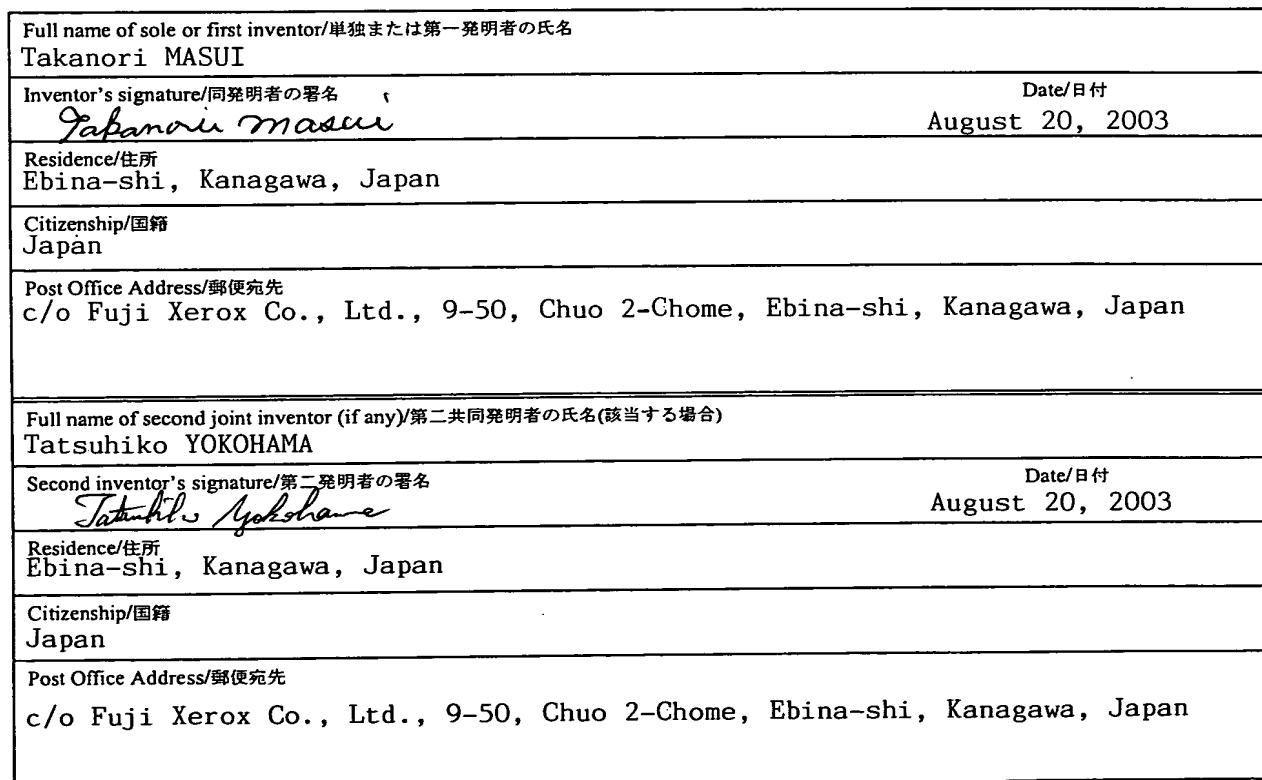 Full name of sole or first inventor/単独または第一発明者の氏名
Takanori MASUI
Inventor's signature/同発明者の署名
Date/日付
Takanori Masui
August 20, 2003
Residence/住所
Ebina-shi, Kanagawa, Japan
Citizenship/国籍
Japan
Post Office Address/郵便宛先
c/o Fuji Xerox Co., Ltd., 9-50, Chuo 2-Chome, Ebina-shi, Kanagawa, Japan
Full name of second joint inventor (if any)/第二共同発明者の氏名(該当する場合)
Tatsuhiko YOKOHAMA
Second inventor's signature/第二発明者の署名
Date/日付
Tatsuhiko Yokohama
August 20, 2003
Residence/住所
Ebina-shi, Kanagawa, Japan
Citizenship/国籍
Japan
Post Office Address/郵便宛先
c/o Fuji Xerox Co., Ltd., 9-50, Chuo 2-Chome, Ebina-shi, Kanagawa, Japan